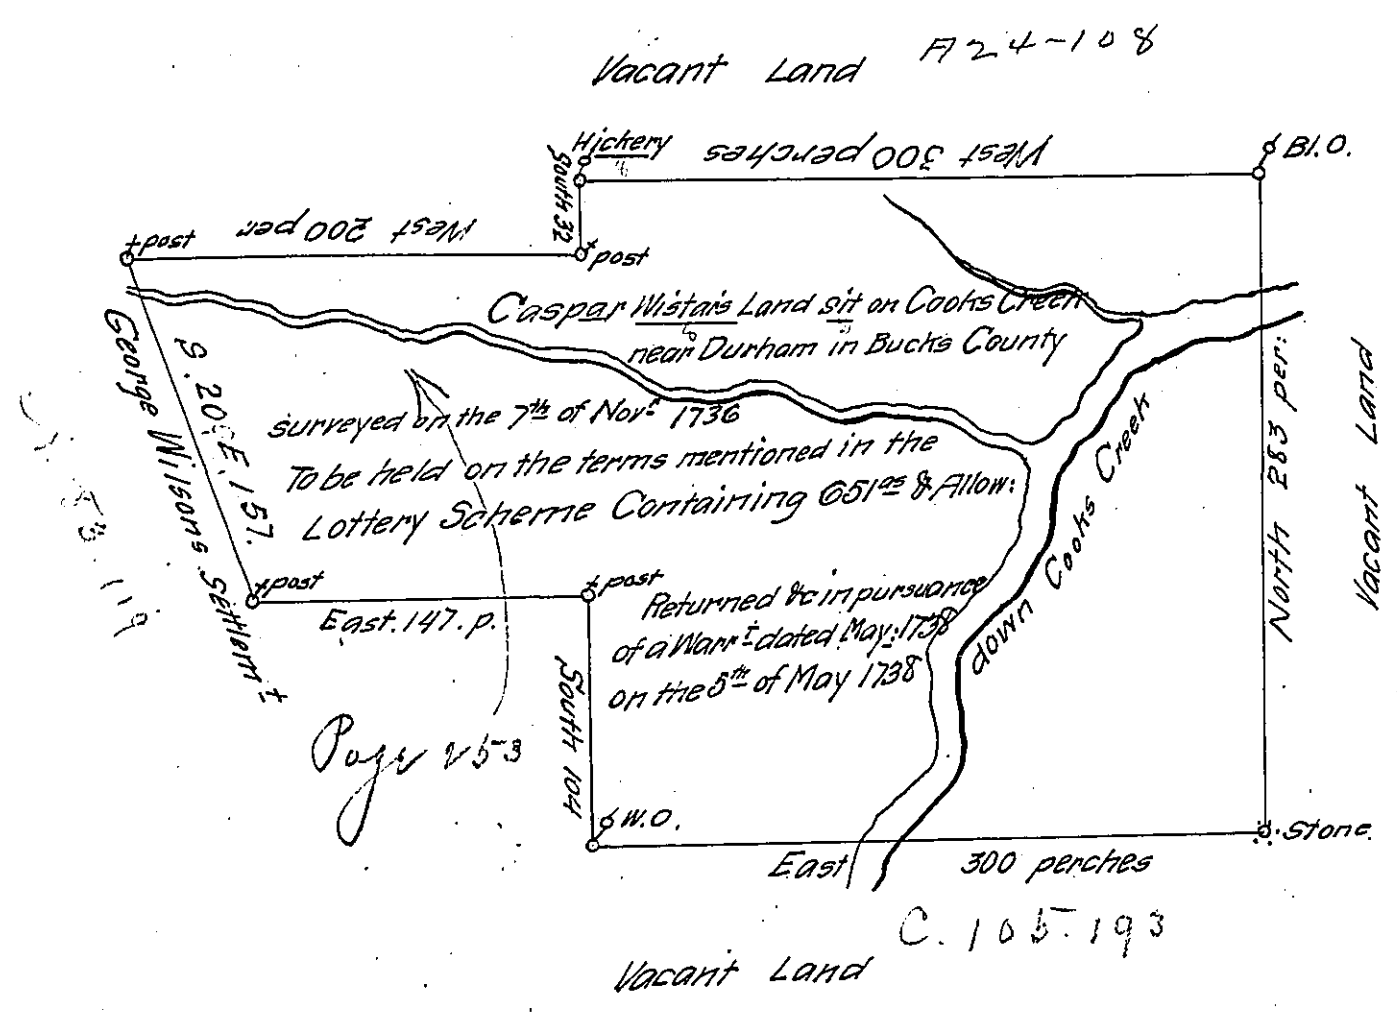 Vacant Land A24-108
Hickery
West 300 perches
Bl.O.
South 32
post
West 200 per
post
Caspar Wistars Land sit on Cooks Creek
near Durham in Bucks County
George Wilsons Settlemt
S. 20° E. 157.
surveyed on the 7th of Novr 1736
To be held on the terms mentioned in the
Lottery Scheme Containing 651as & Allow:
North 283 per:
Vacant Land
down Cooks Creek
119
post
post
East. 147. p.
Returned &c in pursuance
of a Warrt dated May: 1738
on the 5th of May 1738
South 104
Page 253
W.O.
Stone.
East 300 perches
C. 105. 193
Vacant Land